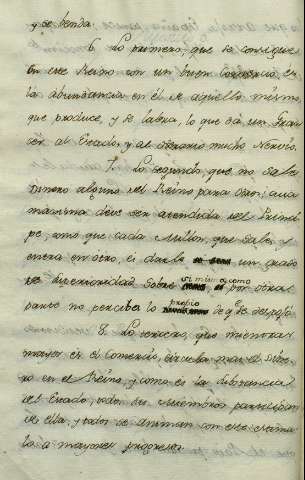 y se benda.
6. Lo primero, que se consigue
en este Reino con un buen comercio, es
la abundancia en él de aquello mismo
que produce, y se labra, lo que dá un gran
ser al Estado, y al herario mucho nervio.
7. Lo segundo, que no sale
dinero alguno del Reino para otro; cuia
maxima debe ser atendida del Princi-
pe, como que cada Millon, que sale, y
entra en otro, es darle un grado
de superioridad sobre si mismo, como por otra
parte no perciba lo propio de qe se despoja.
8. Lo tercero, que mientras
mayor es el Comercio, circula mas el dine-
ro en el Reino, y como es la substancia
del Estado, todos sus miembros participan
de ella, y todos se animan con este estimu-
lo a mayores progresos.